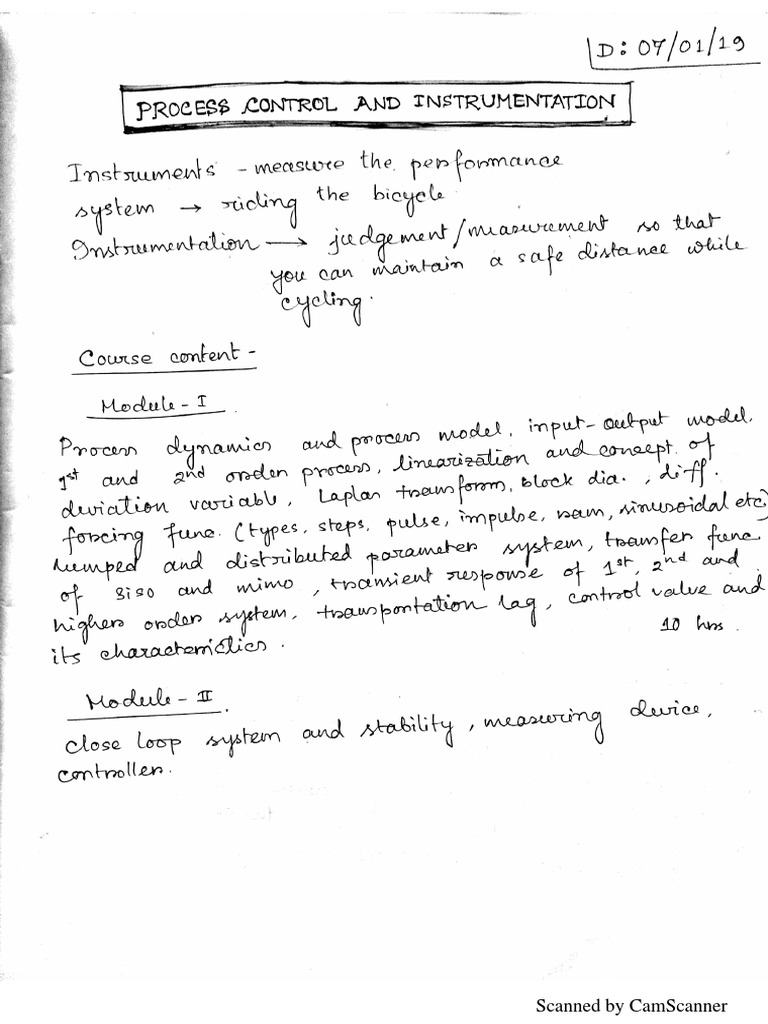 D: 07/01/19
PROCESS CONTROL AND INSTRUMENTATION
Instruments - measure the performance
system → riding the bicycle
Instrumentation → judgement/measurement so that
you can maintain a safe distance while
cycling.
Course content -
Module - I
Process dynamics and process model, input-output model,
1st and 2nd order process, linearization and concept of
deviation variable, Laplan transform, block dia., diff.
forcing func. (types, steps, pulse, impulse, ram, sinusoidal etc)
Lumped and distributed parameter system, transfer func
of SISO and mimo, transient response of 1st, 2nd and
higher order system, transportation lag, control valve and
its characteristics.
10 hrs.
Module - II
close loop system and stability, measuring device,
controller.
Scanned by CamScanner